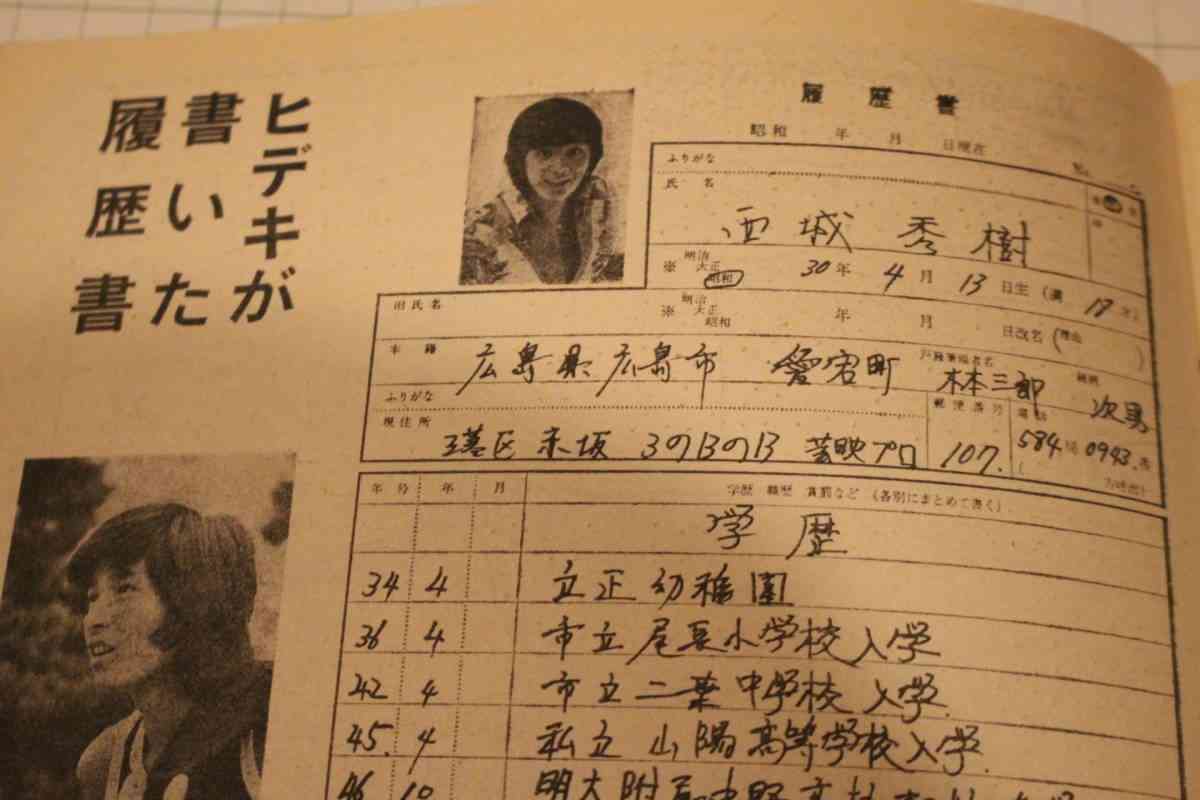 ヒデキが
書いた
履歴書
履歴書
昭和 年 月 日現在
ふりがな
氏名
西城秀樹
※ 明治 大正 昭和 30年 4月 13日生 (満
旧氏名
※ 明治 大正 昭和 年 月 日改名 (理由 )
本籍 広島県広島市 愛宕町
木本三郎
次男
ふりがな
現住所 港区赤坂 3の13の13 芸映プロ
郵便番号 107.
電話 584局 0943番
年号 年 月 学歴 職歴 賞罰など (各別にまとめて書く)
学歴
34 4 立正幼稚園
36 4 市立尾長小学校入学
42 4 市立二葉中学校入学.
45. 4 私立山陽高等学校入学.
46 10 明大附